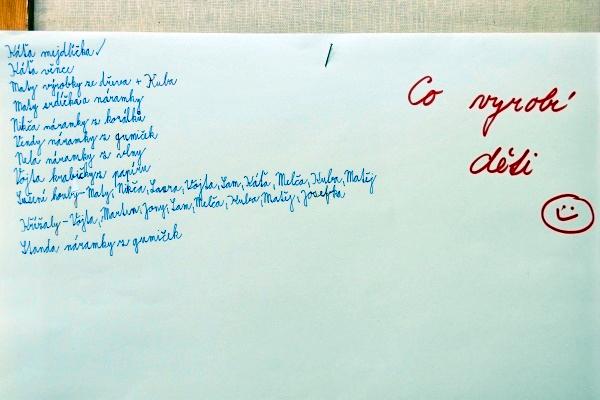 Káťa mejdlíčka ✓
Káťa věnce
Maty výrobky ze dřeva + Kuba
Maty srdíčka a náramky
Nikča náramky z korálků
Vendy náramky z gumiček
Nela náramky z vlny
Vojta krabičky z papíru
Sušené houby - Maty, Nikča, Laura, Vojta, Sam, Káťa, Melča, Kuba, Matěj
Křížaly - Vojta, Martin, Jony, Sam, Melča, Kuba, Matěj, Josefka
Standa náramky z gumiček
Co vyrobí
děti